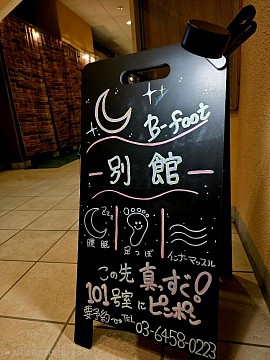 B-foot
別館
zzz
腰眠 足つぼ インナーマッスル
この先 真っすぐ!
101号室にピンポン
要予約です TEL
03-6458-0223